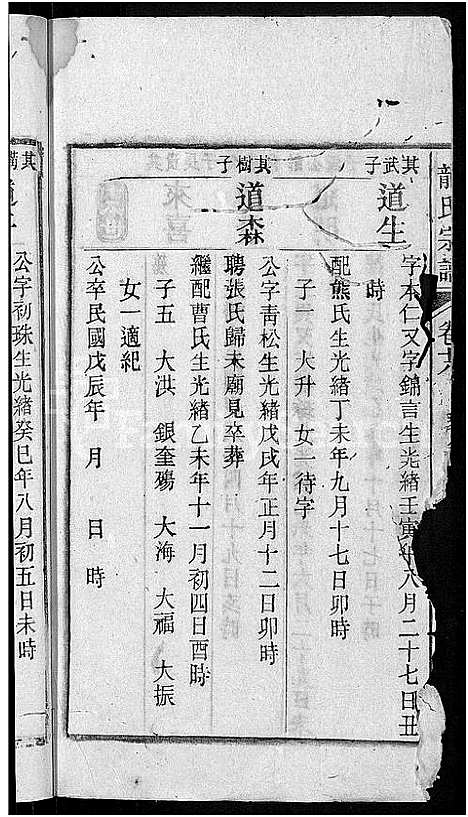 龍氏宗譜
其武子
道生
字本仁又字錦言生光緒壬寅年八月二十七日丑
時
配熊氏生光緒丁未年九月十七日卯時
子一 大升 女一待字
其樹子
道森
公字青松生光緒戊戌年正月十二日卯時
聘張氏歸未廟見卒葬
繼配曹氏生光緒乙未年十一月初四日酉時
子五 大洪 銀奎殤 大海 大福 大振
女一適紀
公卒民國戊辰年 月 日 時
公字初珠生光緒癸巳年八月初五日未時